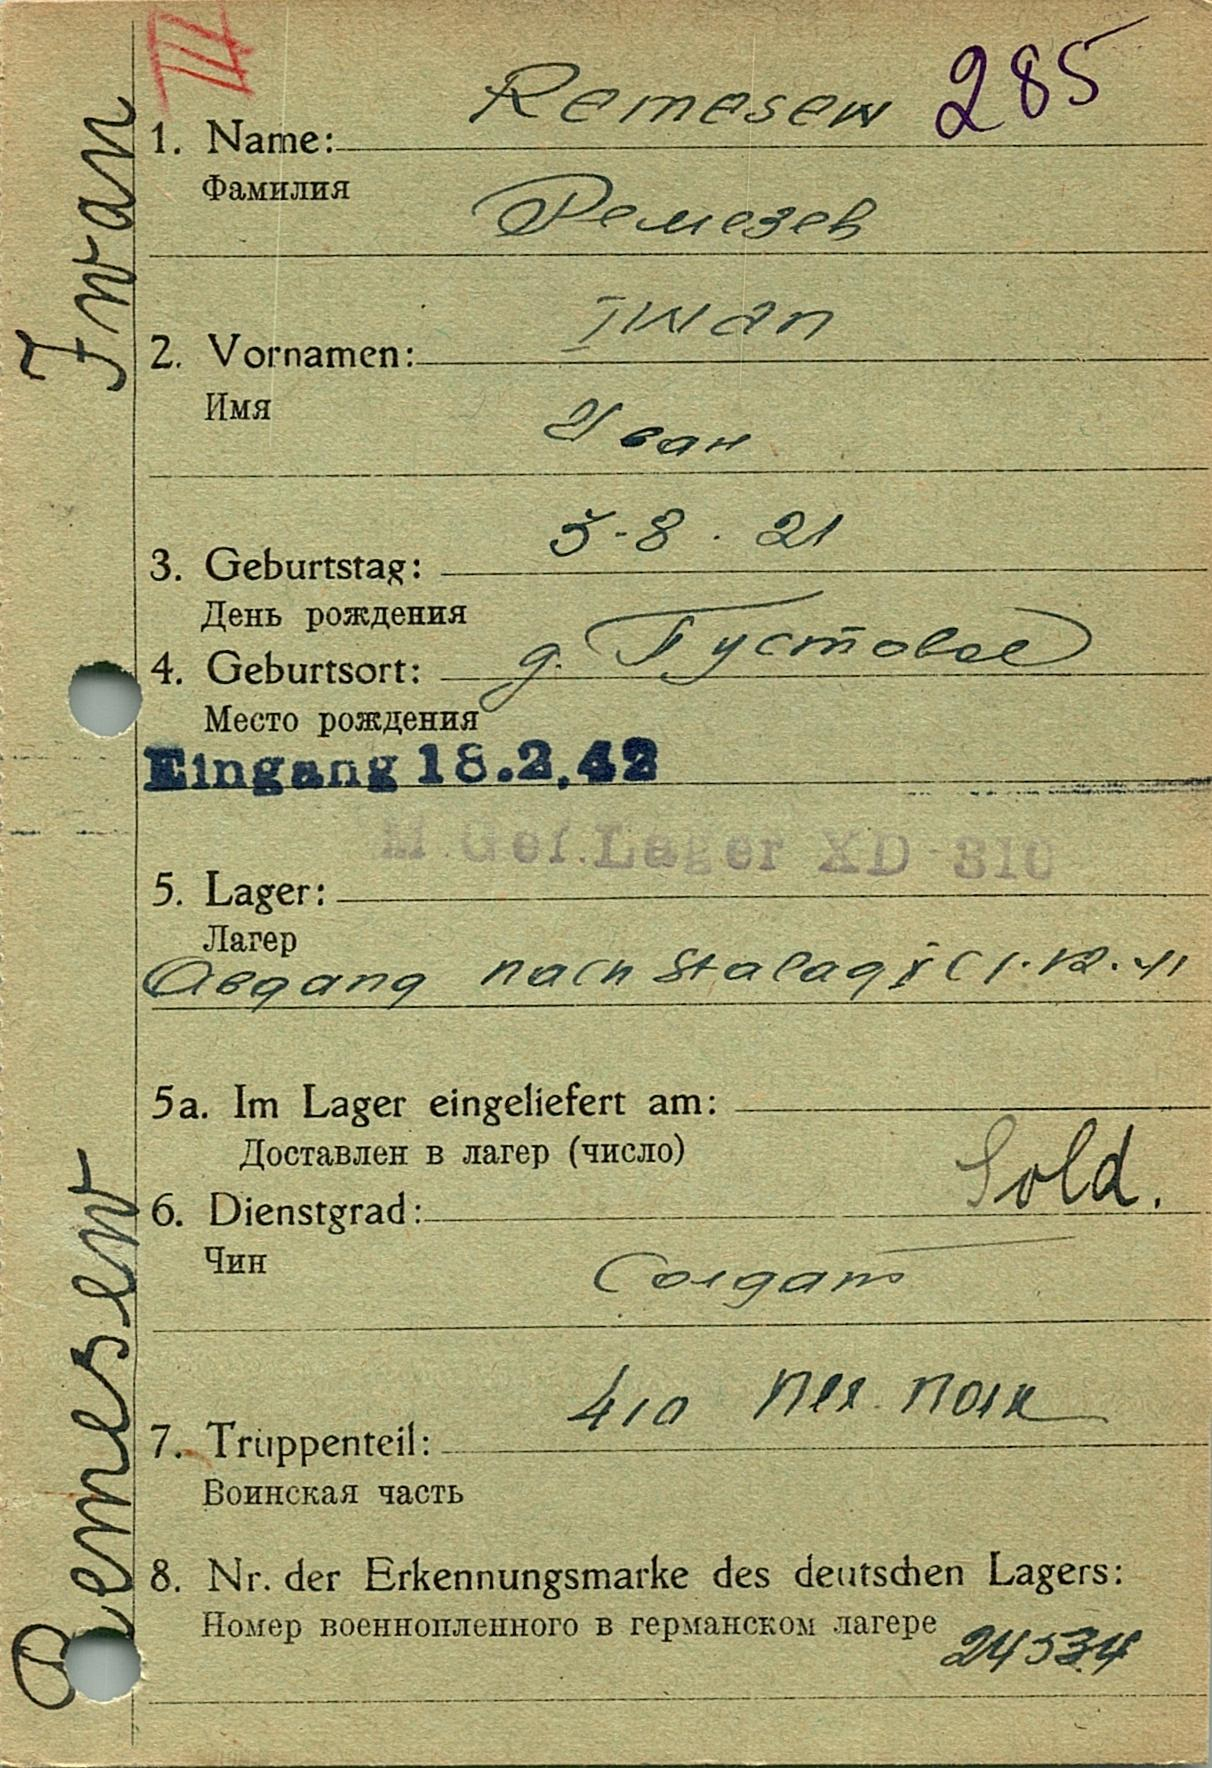 III
285
Remesew
1. Name:
Фамилия
Ремезев
Iwan
2. Vornamen:
Имя
Иван
5-8.21
3. Geburtstag:
День рождения
4. Geburtsort: д. Густовое
Место рождения
Eingang 18.2.42
M.Gef.Lager XD-310
5. Lager:
Лагер
Abgang nach Stalag X C 1.12.41
5a. Im Lager eingeliefert am:
Доставлен в лагер (число)
6. Dienstgrad: Sold.
Чин
Солдат
410 пех. полк
7. Truppenteil:
Воинская часть
8. Nr. der Erkennungsmarke des deutschen Lagers:
Номер военнопленного в германском лагере 24534
Remesew Iwan